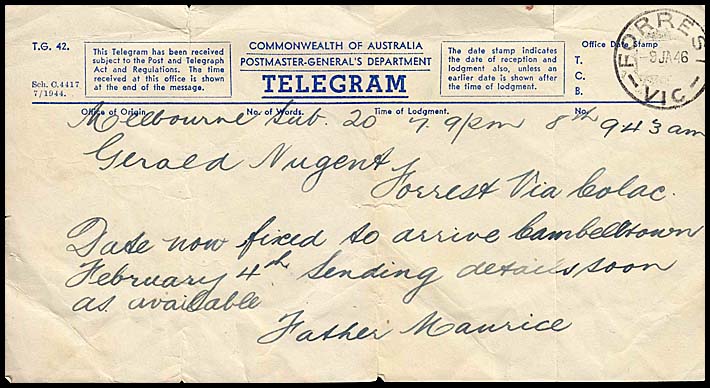 T.G. 42.
Sch. C.4417
7/1944.
This Telegram has been received
subject to the Post and Telegraph
Act and Regulations. The time
received at this office is shown
at the end of the message.
COMMONWEALTH OF AUSTRALIA
POSTMASTER-GENERAL'S DEPARTMENT
TELEGRAM
The date stamp indicates
the date of reception and
lodgment also, unless an
earlier date is shown after
the time of lodgment.
Office Date Stamp
T.
C.
B.
FORREST
9 JA 46
VIC
Office of Origin. No. of Words. Time of Lodgment. No.
Melbourne Sub. 20 7.9pm 8th 943am
Gerald Nugent
Forrest Via Colac.
Date now fixed to arrive Cambelltown
February 4th Sending details soon
as available
Father Maurice